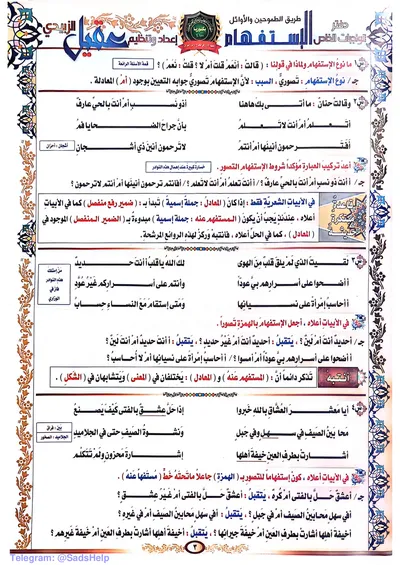 دفتر
نوجبات الخاص
الإستفهام
طريق الطموحين والأوائل
إعداد وتنظيم
عقيل الزبيدي
ما نوع الإستفهام ولماذا في قولنا : ( قالت : أنعمْ قلت أم لا ؟ قلت : نعمْ ) ؟
جـ / نوع الإستفهام : تصوريّ ، السبب : لأن الإستفهام تصوريّ جوابه التعيين بوجود ( أم ) المعادلة .
وقالت حنان : ما أتى بك هاهنا
أذو نسب أم أنت بالحي عارف
أتعلم أم أنت لا تعلم
بأن جراح الضحايا فم
أفيكم أخينا أنها أنتم
لا ترحمون أنين ذي أشجان
أشجان : أحزان
أعد تركيب العبارة مؤكداً شروط الإستفهام التصور .
جـ / أأنت ذو نسب أم أنت بالحي عارف ؟ / أأنت تعلم أم أنت لا تعلم ؟ / أأنتم ترحمون أنينها أم أنتم لا ترحمون ؟
في الأبيات الشعرية فقط ، إذا كان ( المعادل : جملة إسمية ) تبدأ بـ : ( ضمير رفع منفصل ) كما في الأبيات
أعلاه ، عندئذ يجب أن يكون ( المستفهم عنه : جملة إسمية ) مبدوءة بـ ( الضمير المنفصل ) الموجود في
( المعادل ) ، كما في الحل أعلاه ، فانتبه وركز لهذه الروائع المرشحة .
لقيت الذي لم يلق قلب من الهوى
لك الله يا قلب أأنت حديد
أأضحوا على أسرارهم بي عوذا
وأنتم على أسراركم غير عُوذ
أأحاسب إمرأة على نسيانها
ومتى إستقام مع النساء حساب
في الأبيات أعلاه ، أجعل الإستفهام بالهمزة تصوراً .
جـ / أأنت حديد أم أنت غير حديد ؟ ، يتقبل : أحديد أنت أم غير حديد ؟ ، يتقبل : أأنت حديد أم أنت لين ؟
أأضحوا على أسرارهم بي عوذا أم أمسوا ؟ / أأحاسب إمرأة على نسيانها أم لا أحاسب ؟
أنتبه
تذكر دائماً أن : ( المستفهم عنه ) و ( المعادل ) : يختلفان في ( المعنى ) ويتشابهان في ( الشكل ) .
أيا معشر العشاق بالله خبروا
إذا حل عشق بالفتى كيف يصنع
محا بين الصيف في سهل وفي جبل
ونشوة الصيف حتى في الجلاميد
أشارت بطرف العين خيفة أهلها
إشارة محزون ولم تتكلم
في الأبيات أعلاه ، كون إستفهاماً للتصور بـ ( الهمزة ) جاعلاً ما تحته خط ( مستفهماً عنه ) .
جـ / أعشق حل بالفتى أم كره ، يتقبل : أعشق حل بالفتى أم غير عشق ؟
أفي سهل محا بين الصيف أم في جبل ؟ ، يتقبل : أفي سهل محا بين الصيف أم في غيره ؟
أخيفة أهلها أشارت بطرف العين أم خيفة جيرانها ؟ ، يتقبل : أخيفة أهلها أشارت بطرف العين أم خيفة غيرهم ؟
٣
Telegram: @SadsHelp